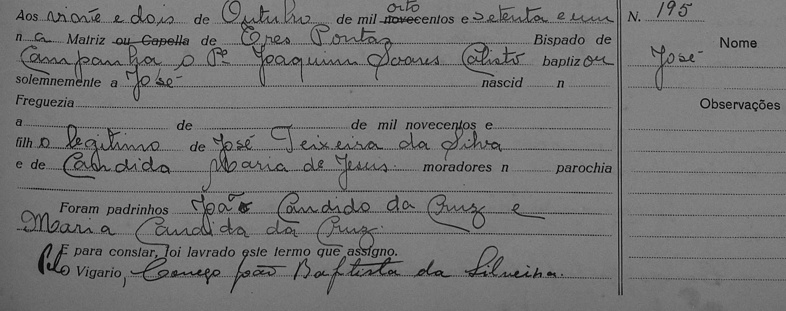 Aos vinte e dois de Outubro de mil oito novecentos e setenta e um
n a Matriz ou Capella de Tres Pontas Bispado de
Campanha o Pe Joaquim Soares Calisto baptizou
solemnemente a José nascid n
Freguezia
a de de mil novecentos e
filho legitimo de José Teixeira da Silva
e de Candida Maria de Jesus. moradores n parochia
Foram padrinhos João Candido da Cruz e
Maria Candida da Cruz.
E para constar, foi lavrado este termo que assigno.
Pelo Vigario, Conego João Baptista da Silveira.
N. 195
Nome
José
Observações